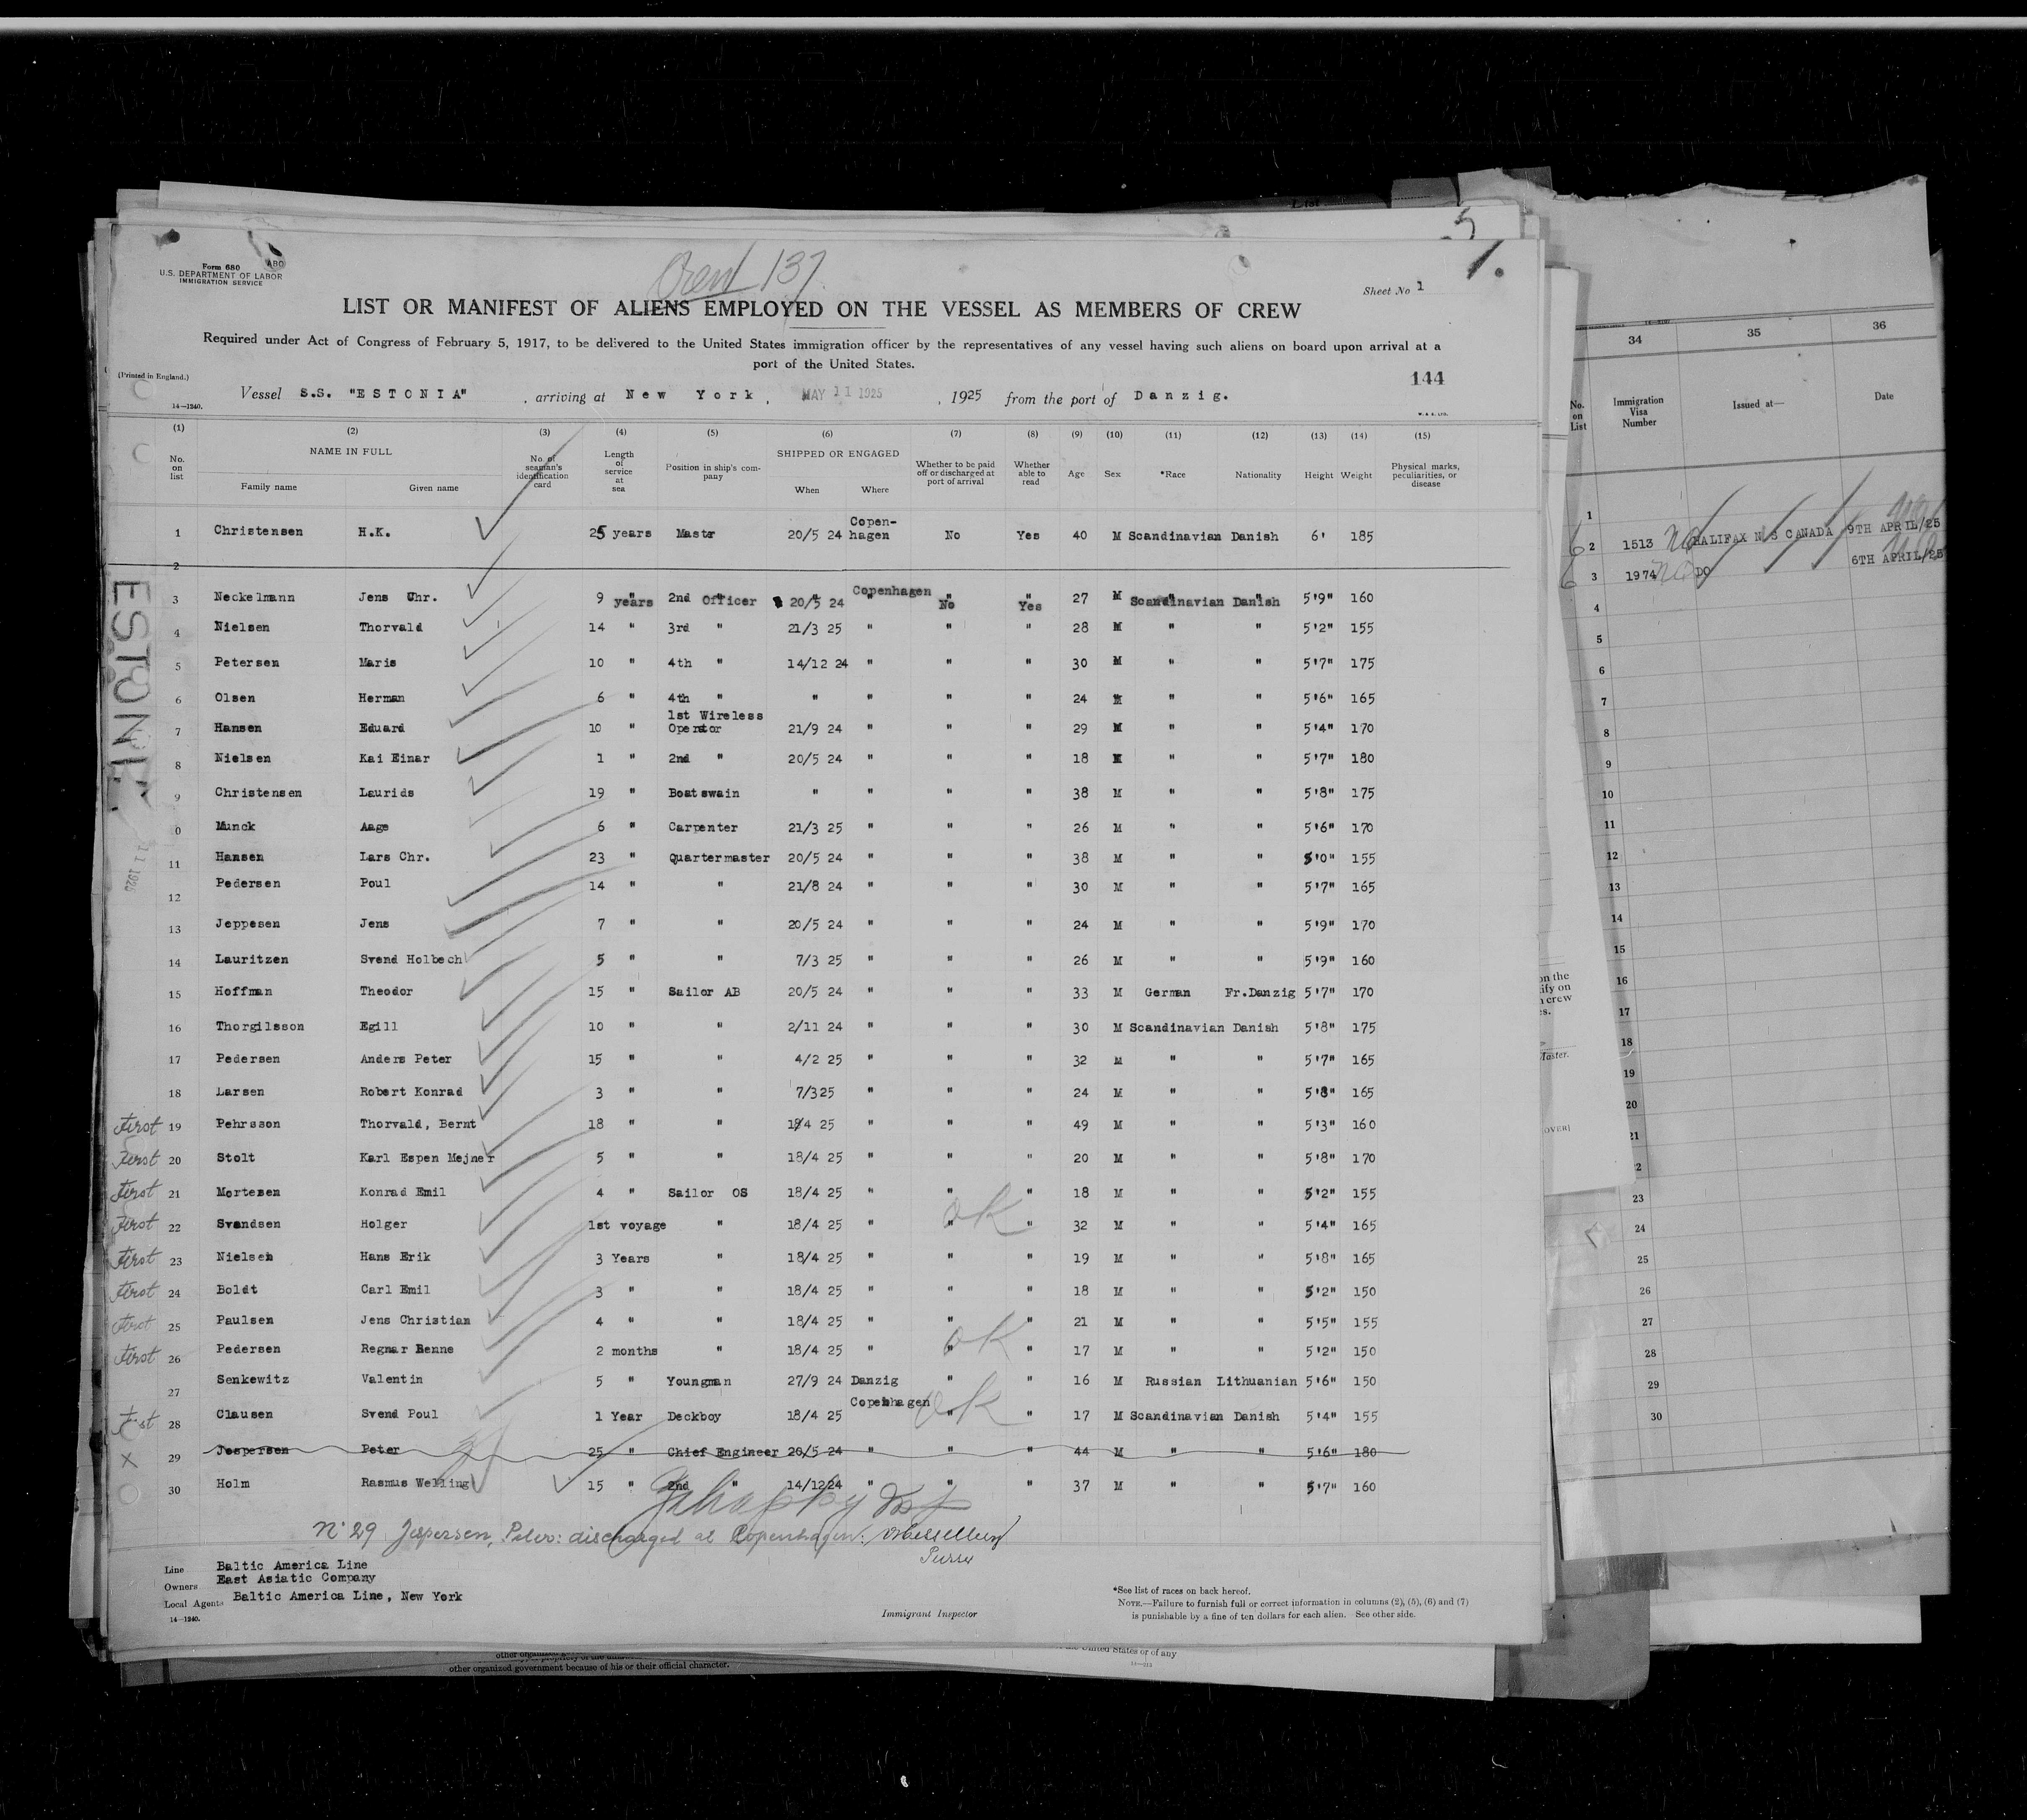 List
5
Form 680
U.S. DEPARTMENT OF LABOR
IMMIGRATION SERVICE
ABO
Crew 137
1.
Sheet No 1
LIST OR MANIFEST OF ALIENS EMPLOYED ON THE VESSEL AS MEMBERS OF CREW
Required under Act of Congress of February 5, 1917, to be delivered to the United States immigration officer by the representatives of any vessel having such aliens on board upon arrival at a
port of the United States.
(Printed in England.)
144
Vessel S.S. "ESTONIA" , arriving at New York, MAY 11 1925 , 1925 from the port of Danzig.
14—1240.
(1) (2) (3) (4) (5) (6) (7) (8) (9) (10) (11) (12) (13) (14) (15)
No. on list NAME IN FULL Family name Given name No. of seaman's identification card Length of service at sea Position in ship's company SHIPPED OR ENGAGED When Where Whether to be paid off or discharged at port of arrival Whether able to read Age Sex *Race Nationality Height Weight Physical marks, peculiarities, or disease
1 Christensen H.K. 25 years Mastr 20/5 24 Copen-hagen No Yes 40 M Scandinavian Danish 6' 185
2
3 Neckelmann Jens Chr. 9 " years 2nd Officer 20/5 24 Copenhagen " " No " Yes 27 M Scandinavian Danish 5'9" 160
4 Nielsen Thorvald 14 " 3rd " 21/3 25 " " " 28 M " " 5'2" 155
5 Petersen Maris 10 " 4th " 14/12 24 " " " 30 M " " 5'7" 175
6 Olsen Herman 6 " 4th " " " " " 24 M " " 5'6" 165
7 Hansen Eduard 10 " 1st Wireless Operator 21/9 24 " " " 29 M " " 5'4" 170
8 Nielsen Kai Einar 1 " 2nd " 20/5 24 " " " 18 M " " 5'7" 180
9 Christensen Laurids 19 " Boatswain " " " " 38 M " " 5'8" 175
0 Munck Aage 6 " Carpenter 21/3 25 " " " 26 M " " 5'6" 170
11 Hansen Lars Chr. 23 " Quartermaster 20/5 24 " " " 38 M " " 5'0" 155
12 Pedersen Poul 14 " " 21/8 24 " " " 30 M " " 5'7" 165
13 Jeppesen Jens 7 " " 20/5 24 " " " 24 M " " 5'9" 170
14 Lauritzen Svend Holbech 5 " " 7/3 25 " " " 26 M " " 5'9" 160
15 Hoffman Theodor 15 " Sailor AB 20/5 24 " " " 33 M German Fr.Danzig 5'7" 170
16 Thorgilsson Egill 10 " " 2/11 24 " " " 30 M Scandinavian Danish 5'8" 175
17 Pedersen Anders Peter 15 " " 4/2 25 " " " 32 M " " 5'7" 165
18 Larsen Robert Konrad 3 " " 7/325 " " " 24 M " " 5'8" 165
First 19 Pehrsson Thorvald, Bernt 18 " " 18/4 25 " " " 49 M " " 5'3" 160
First 20 Stolt Karl Espen Mejner 5 " " 18/4 25 " " " 20 M " " 5'8" 170
First 21 Mortesen Konrad Emil 4 " Sailor OS 18/4 25 " " " 18 M " " 5'2" 155
First 22 Svandsen Holger 1st voyage " 18/4 25 " " ok " 32 M " " 5'4" 165
First 23 Nielsen Hans Erik 3 Years " 18/4 25 " " " 19 M " " 5'8" 165
First 24 Boldt Carl Emil 3 " " 18/4 25 " " " 18 M " " 5'2" 150
First 25 Paulsen Jens Christian 4 " " 18/4 25 " " " 21 M " " 5'5" 155
First 26 Pedersen Regnar Benne 2 months " 18/4 25 " " ok " 17 M " " 5'2" 150
27 Senkewitz Valentin 5 " Youngman 27/9 24 Danzig " " 16 M Russian Lithuanian 5'6" 150
First 28 Clausen Svend Poul 1 Year Deckboy 18/4 25 Copenhagen ok " " 17 M Scandinavian Danish 5'4" 155
x 29 Jespersen Peter 25 " Chief Engineer 20/5 24 " " " 44 M " " 5'6" 180
30 Holm Rasmus Welling 15 " 2nd " 14/1224 " " " 37 M " " 5'7" 160
No 29 Jespersen, Peter: discharged at Copenhagen.
Purser
Line Baltic America Line
Owners East Asiatic Company
Local Agents Baltic America Line, New York
14—1240.
Immigrant Inspector
*See list of races on back hereof.
NOTE.—Failure to furnish full or correct information in columns (2), (5), (6) and (7)
is punishable by a fine of ten dollars for each alien. See other side.
ESTONIA
11 1925
34 35 36
No. on List Immigration Visa Number Issued at— Date
1
2 1513 HALIFAX N S CANADA 9TH APRIL/25
3 1974 DO 6TH APRIL/25
4
5
6
7
8
9
10
11
12
13
14
15
16
17
18
19
20
21
2
23
24
25
26
27
28
29
30
on the
ify on
crew
es.
Master.
OVER]
United States or of any
other organized government because of his or their official character.